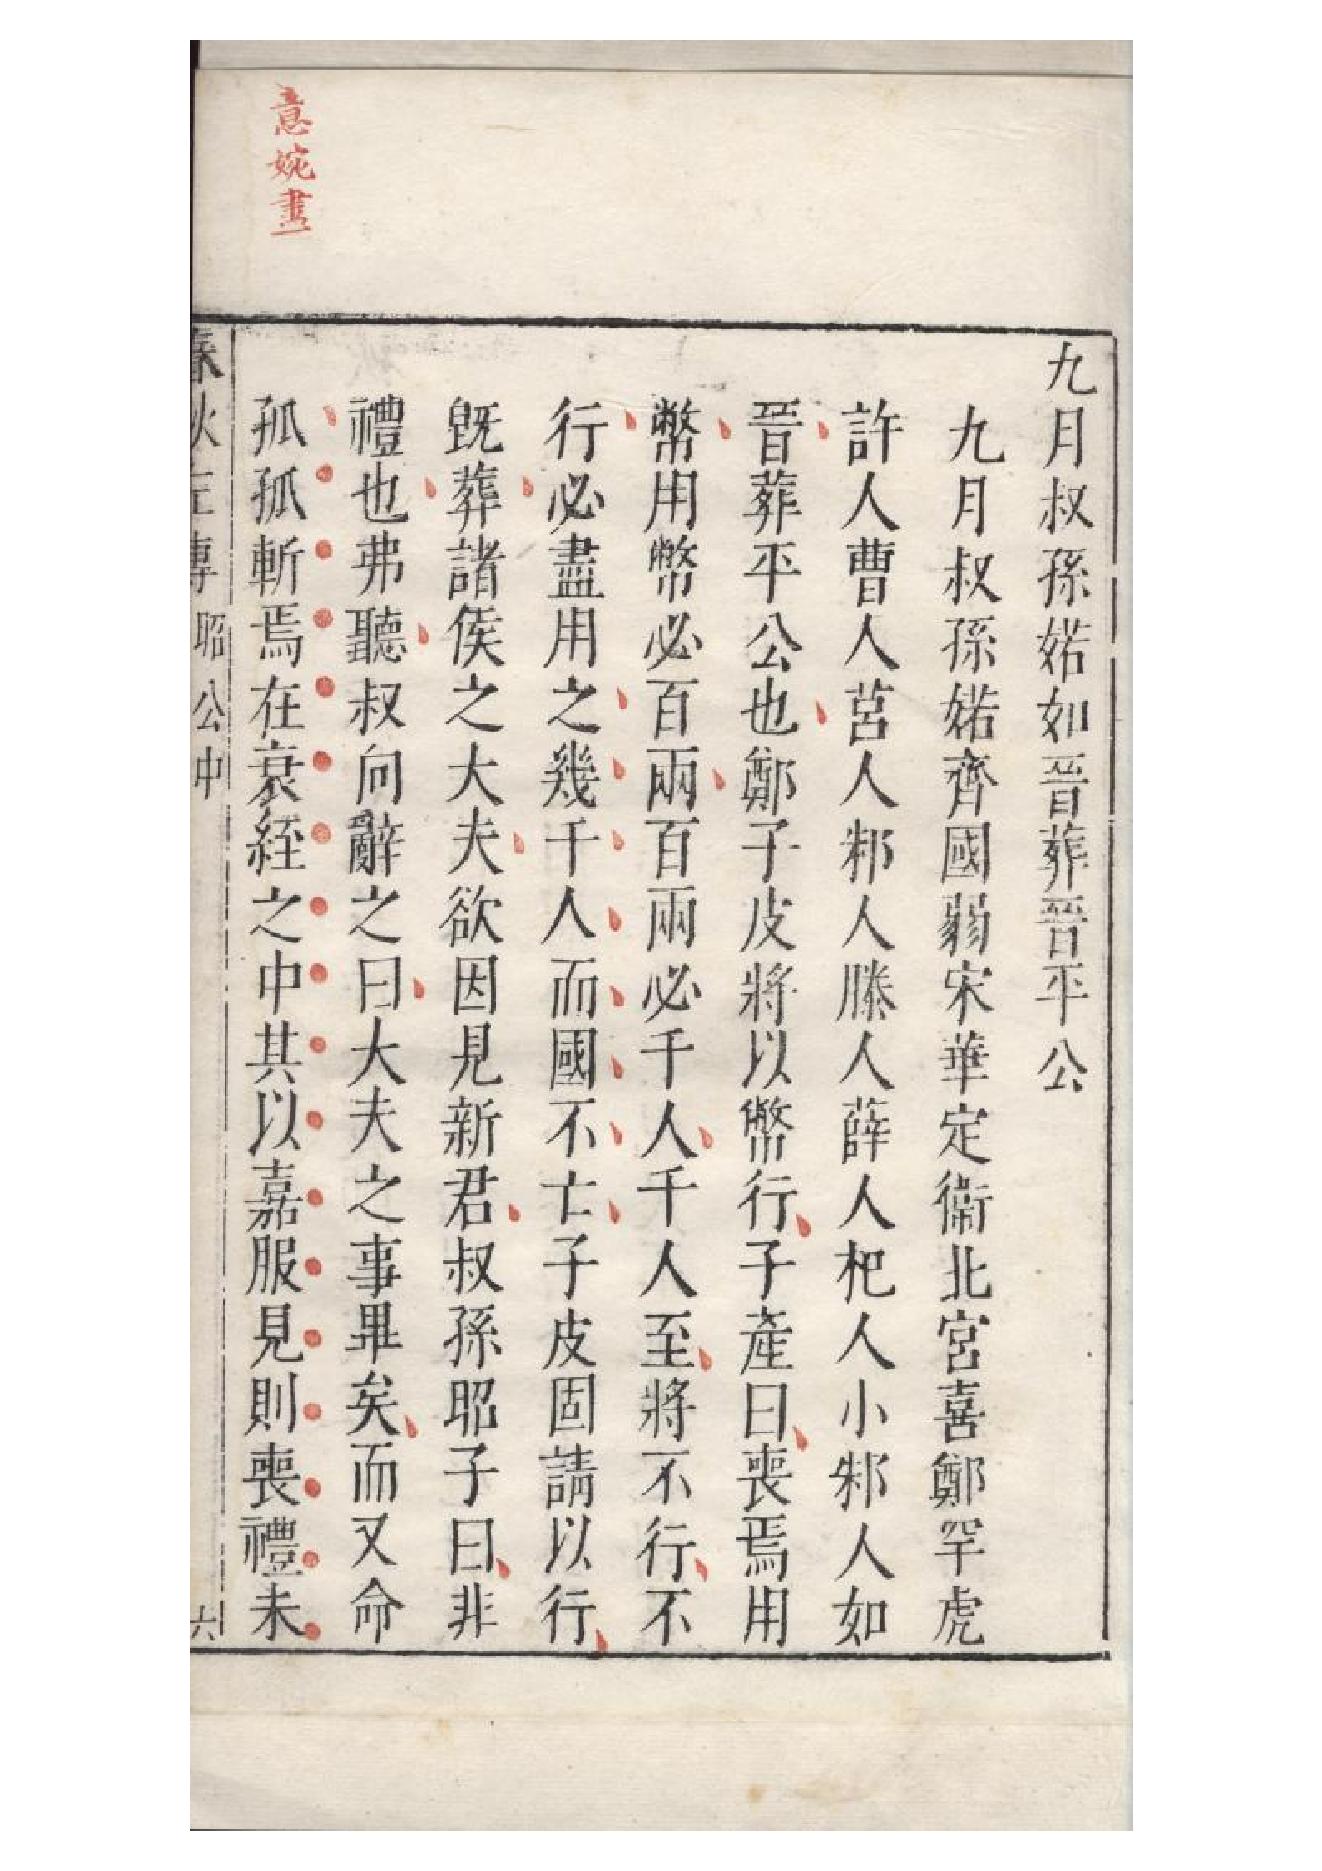 意婉盡
九月叔孫婼如晉葬晉平公
九月叔孫婼齊國弱宋華定衞北宮喜鄭罕虎
許人曹人莒人邾人滕人薛人杞人小邾人如
晉葬平公也鄭子皮將以幣行子產曰喪焉用
幣用幣必百兩百兩必千人千人至將不行不
行必盡用之幾千人而國不亡子皮固請以行
旣葬諸侯之大夫欲因見新君叔孫昭子曰非
禮也弗聽叔向辭之曰大夫之事畢矣而又命
孤孤斬焉在衰絰之中其以嘉服見則喪禮未
春秋左傳 昭公中 六